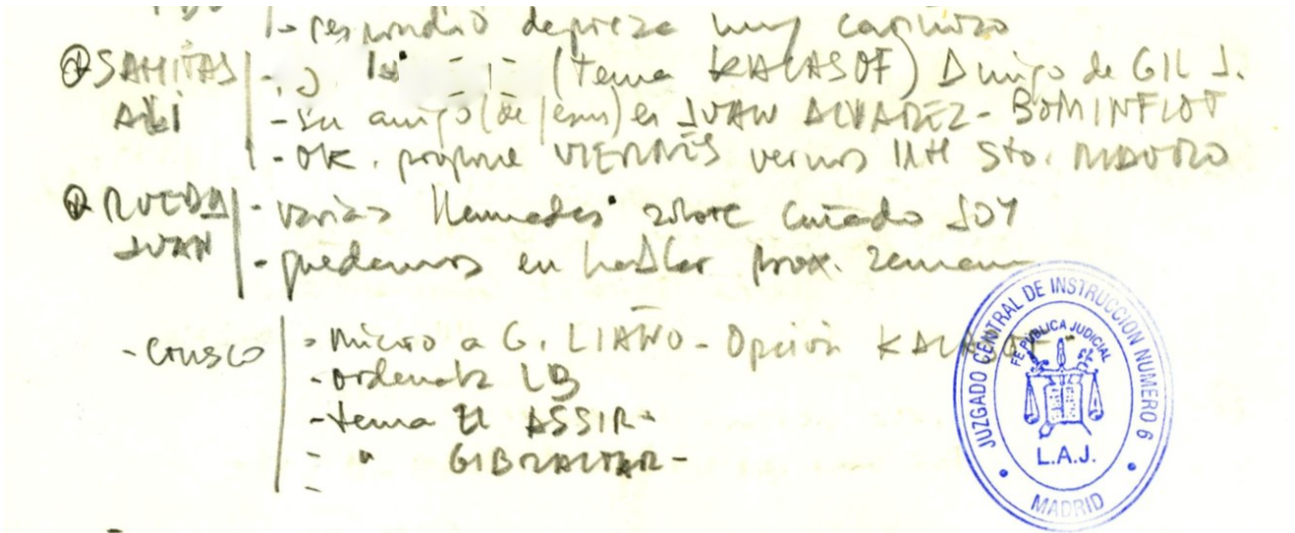 - respondió depreza muy cariñoso
SANITAS - (tema KALASOF) Amigo de GIL J.
ALI - su amigo (de Jesus) es JUAN ALVAREZ - BOMINFLOT
- OK. propone VIERNES vernos Sto. MAURO
RUEDA - varias llamadas sobre cuñado JOY
JUAN - quedamos en hablar prox. semana
- CRUSCO - Micro a G. LIAÑO - Opción KALASOF -
- ordenata LB
- tema El ASSIR -
- " GIBRALTAR -
-
JUZGADO CENTRAL DE INSTRUCCION NUMERO 6
FE PUBLICA JUDICIAL
L.A.J.
MADRID